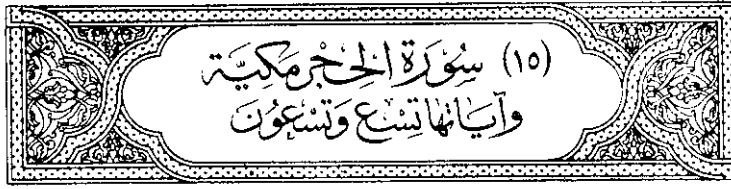 (١٥) سُورَة الحِجْر مَكِيَّة
وَآيَاتُهَا تِسْع وَتِسْعُونَ